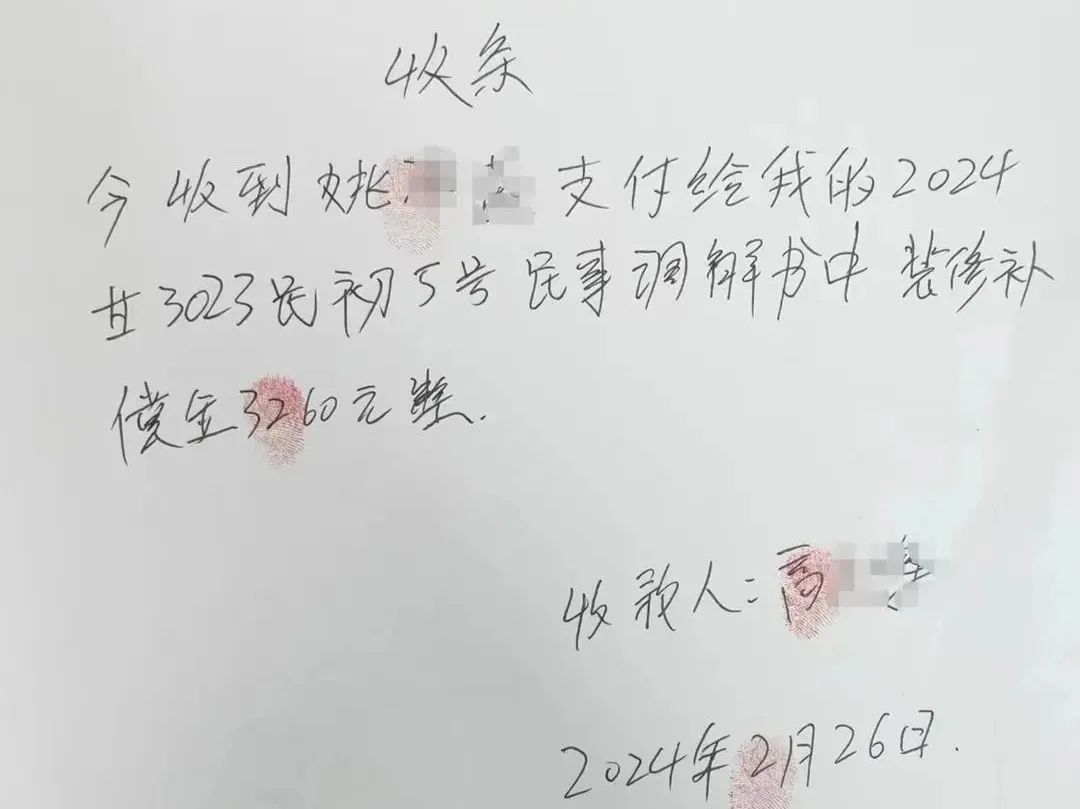 收条
今收到姚 支付给我的2024
甘3023民初5号民事调解书中装修补
偿金3260元整.
收款人:高
2024年2月26日.